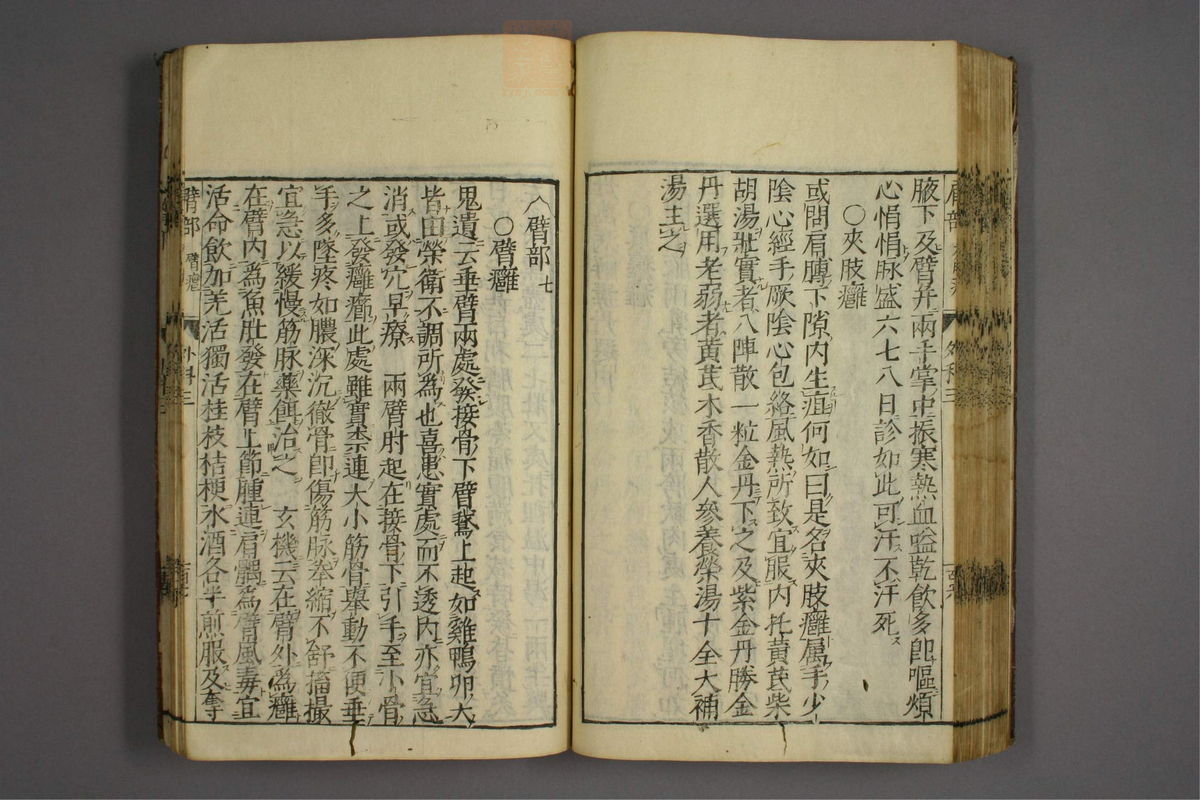 腋下及臂并兩手掌中振寒熱血嗌乾飲多即嘔煩
心悁悁脉盛六七八日診如此可汗不汗死
○夾肢癰
或問肩膊下隙内生疽何如曰是名夾肢癰属手少
陰心經手厥陰心包絡風熱所致宜服内托黄芪柴
胡湯壯實者八陣散一粒金丹下之及紫金丹勝金
丹選用老弱者黄芪木香散人參養榮湯十全大補
湯主之
臂部 七
○臂癰
鬼遺云垂臂兩處發接骨下臂鵞上起如雞鴨卵大
皆由榮衛不調所為也喜患實處而不透内亦宜急
消或發穴早療 兩臂肘起在接骨下引手至小骨
之上發癰癤此處雖實柰連大小筋骨舉動不便垂
手多墜疼如膿深沉徹骨即傷筋脉拳縮不舒搐撮
宜急以緩慢筋脉藥餌治之 玄機云在臂外為癰
在臂内為魚肚發在臂上節腫連肩髃為臂風毒宜
活命飲加羌活獨活桂枝桔梗水酒各半煎服及奪
臂部 臂癰 外科三